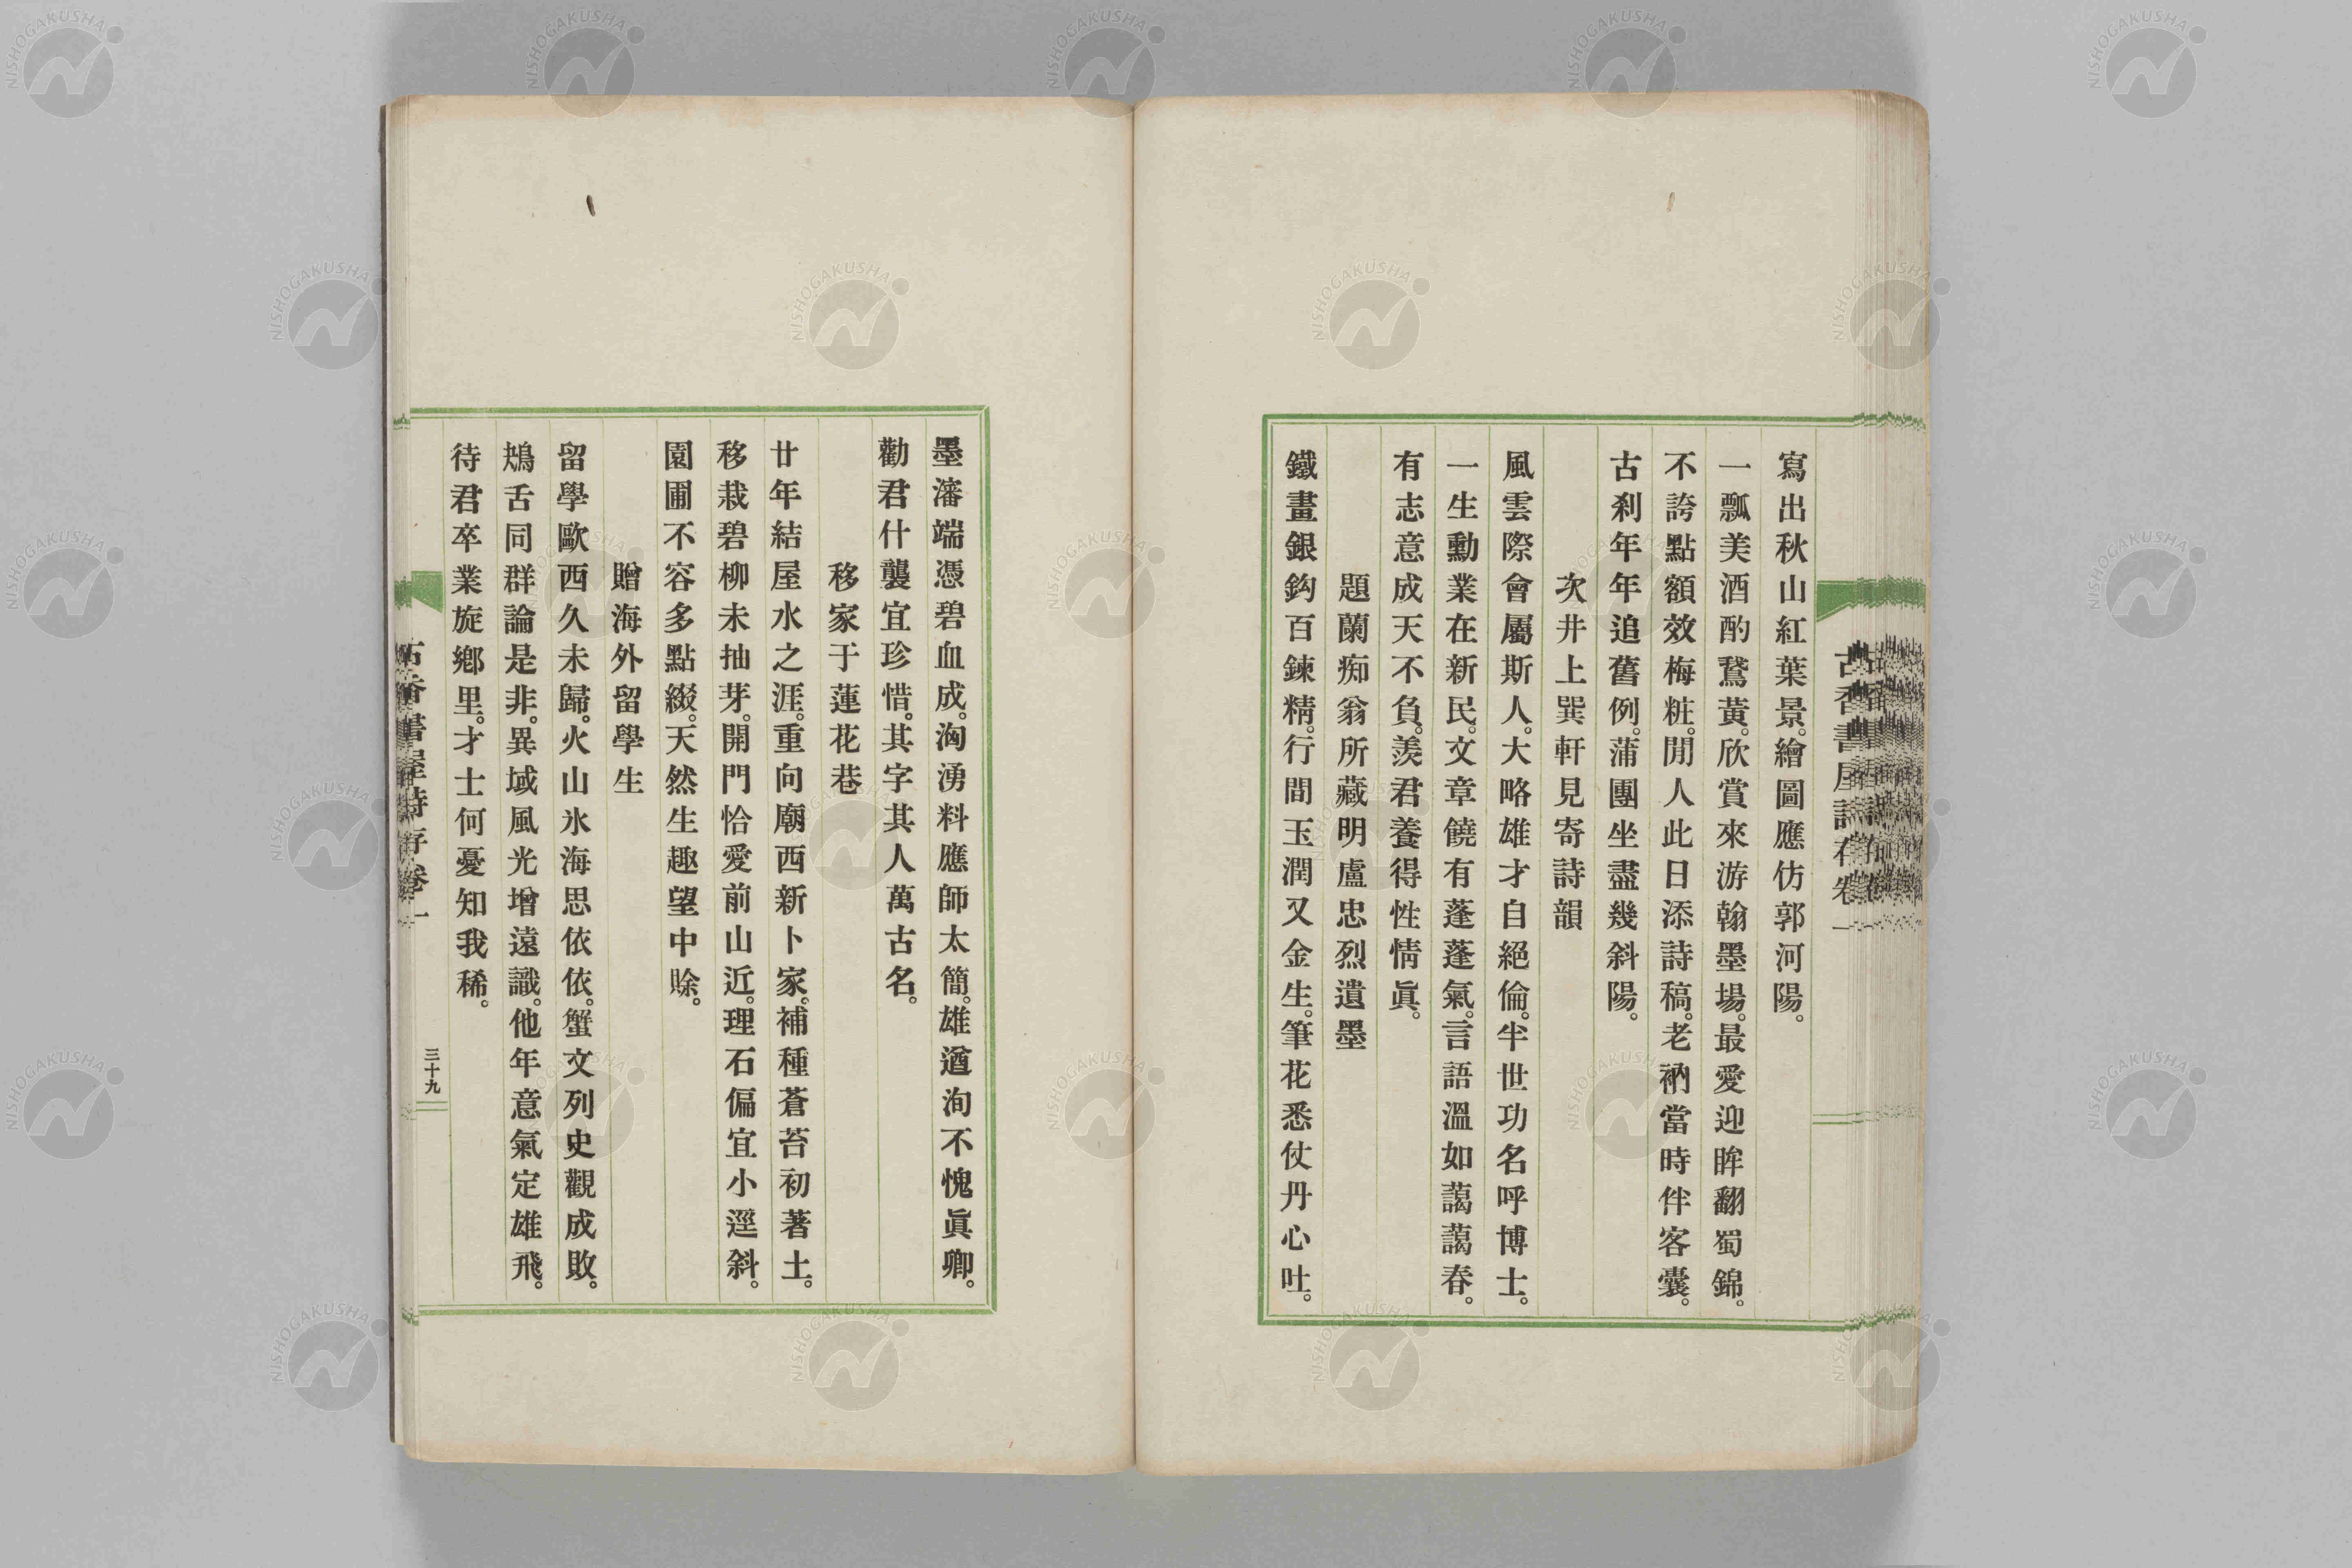 寫出秋山紅葉景。繪圖應仿郭河陽。
一瓢美酒酌鵞黃。欣賞來游翰墨場。最愛迎眸翻蜀錦。
不誇點額效梅粧。閒人此日添詩稿。老衲當時伴客囊。
古刹年年追舊例。蒲團坐盡幾斜陽。
次井上巽軒見寄詩韻
風雲際會屬斯人。大略雄才自絕倫。半世功名呼博士。
一生勳業在新民。文章饒有蓬蓬氣。言語溫如藹藹春。
有志意成天不負。羨君養得性情眞。
題蘭痴翁所藏明盧忠烈遺墨
鐵畫銀鈎百鍊精。行間玉潤又金生。筆花悉仗丹心吐。
墨瀋端憑碧血成。洶湧料應師太簡。雄遒洵不愧眞卿。
勸君什襲宜珍惜。其字其人萬古名。
移家于蓮花巷
廿年結屋水之涯。重向廟西新卜家。補種蒼苔初著土。
移栽碧柳未抽芽。開門恰愛前山近。理石偏宜小逕斜。
園圃不容多點綴。天然生趣望中賒。
贈海外留學生
留學歐西久未歸。火山氷海思依依。蟹文列史觀成敗。
鴂舌同群論是非。異域風光增遠識。他年意氣定雄飛。
待君卒業旋鄕里。才士何憂知我稀。
古香書屋詩存卷一
三十九